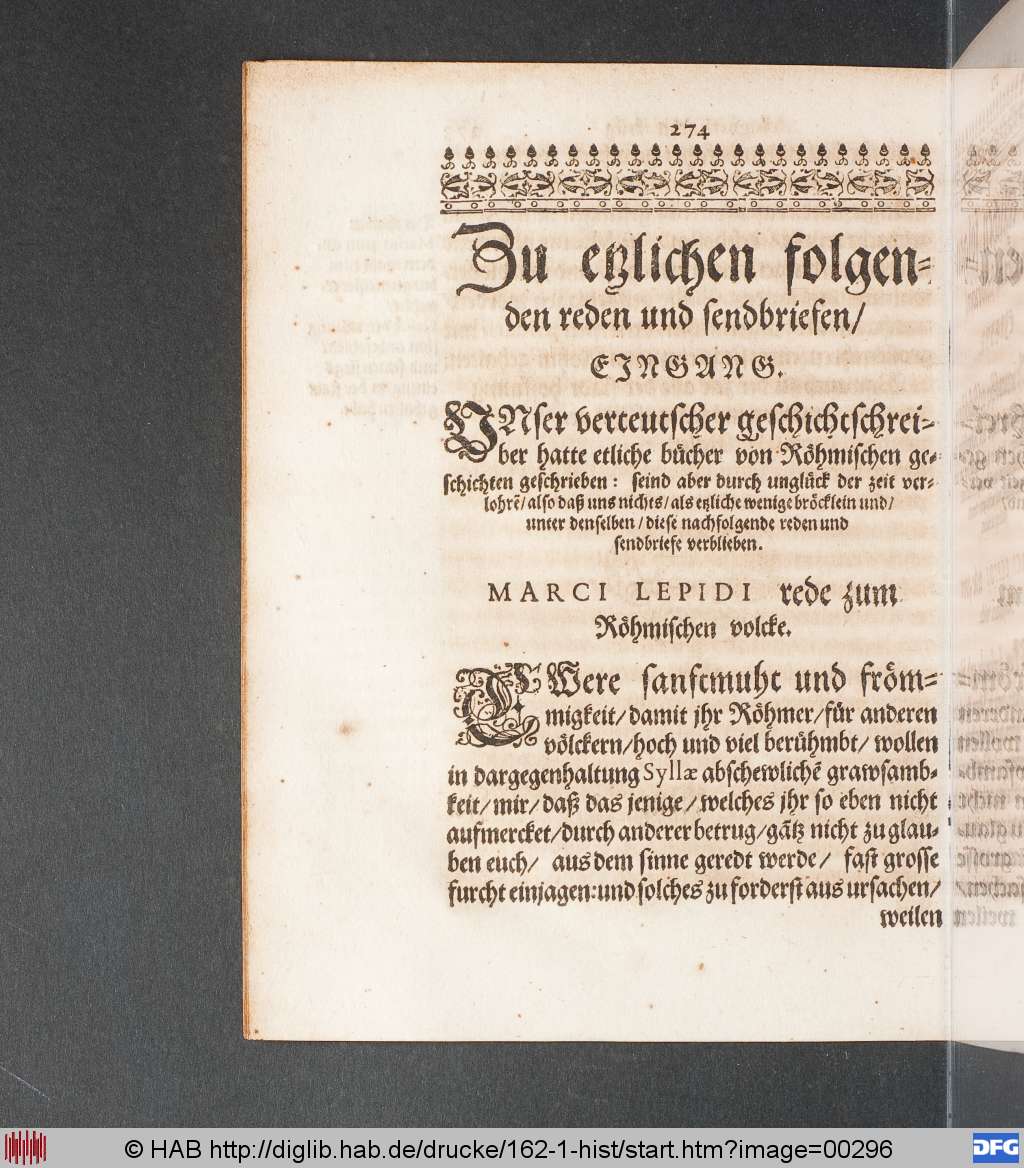 274
Zu etzlichen folgen-
den reden und sendbriefen/
EINGANG.
VNser verteutscher geschichtschrei-
ber hatte etliche bücher von Röhmischen ge-
schichten geschrieben: seind aber durch unglück der zeit ver-
lohrē/ also daß uns nichts/ als etzliche wenige bröcklein und/
unter denselben/ diese nachfolgende reden und
sendbriefe verblieben.
MARCI LEPIDI rede zum
Röhmischen volcke.
EWere sanftmuht und fröm-
migkeit/ damit jhr Röhmer/ für anderen
völckern/ hoch und viel berühmbt/ wollen
in dargegenhaltung Syllæ abschewlichē grawsamb-
keit/ mir/ daß das jenige/ welches jhr so eben nicht
aufmercket/ durch anderer betrug/ gātz nicht zu glau-
ben euch/ aus dem sinne geredt werde/ fast grosse
furcht einjagen: und solches zu forderst aus ursachen/
weilen
© HAB http://diglib.hab.de/drucke/162-1-hist/start.htm?image=00296
DFG